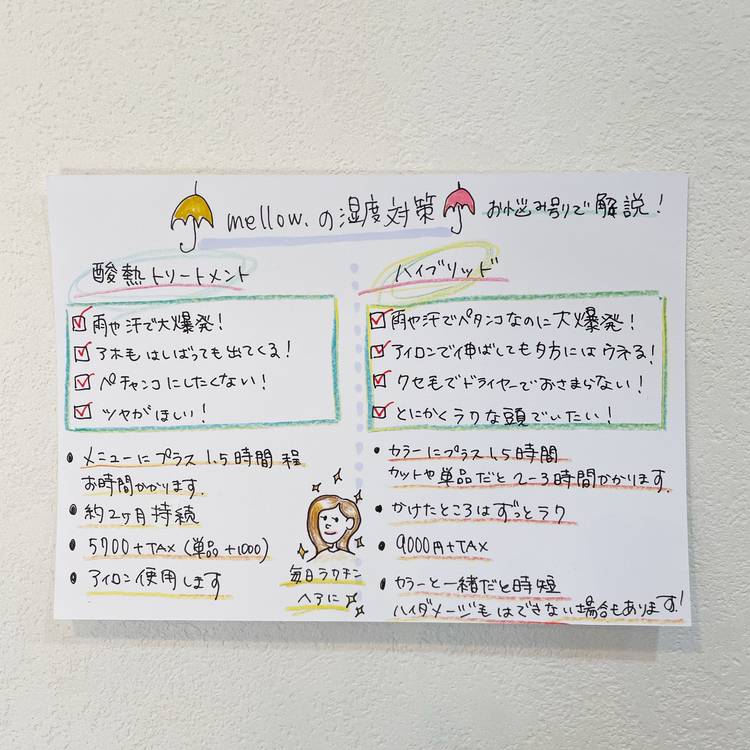 mellow.の湿度対策
お悩み別で解説!
酸熱トリートメント
雨や汗で大爆発!
アホ毛はしばっても出てくる!
ペチャンコにしたくない!
ツヤがほしい!
メニューにプラス1.5時間程
お時間かかります.
約2ヶ月持続
5700+TAX(単品+1000)
アイロン使用します
毎日ラクチン
ヘアに
ハイブリッド
雨や汗でペタンコなのに大爆発!
アイロンで伸ばしても夕方にはウネる!
クセ毛でドライヤーでおさまらない!
とにかくラクな頭でいたい!
カラーにプラス1.5時間
カットや単品だと2~3時間かかります.
かけたところはずっとラク
9000円+TAX
カラーと一緒だと時短
ハイダメージ毛はできない場合もあります!